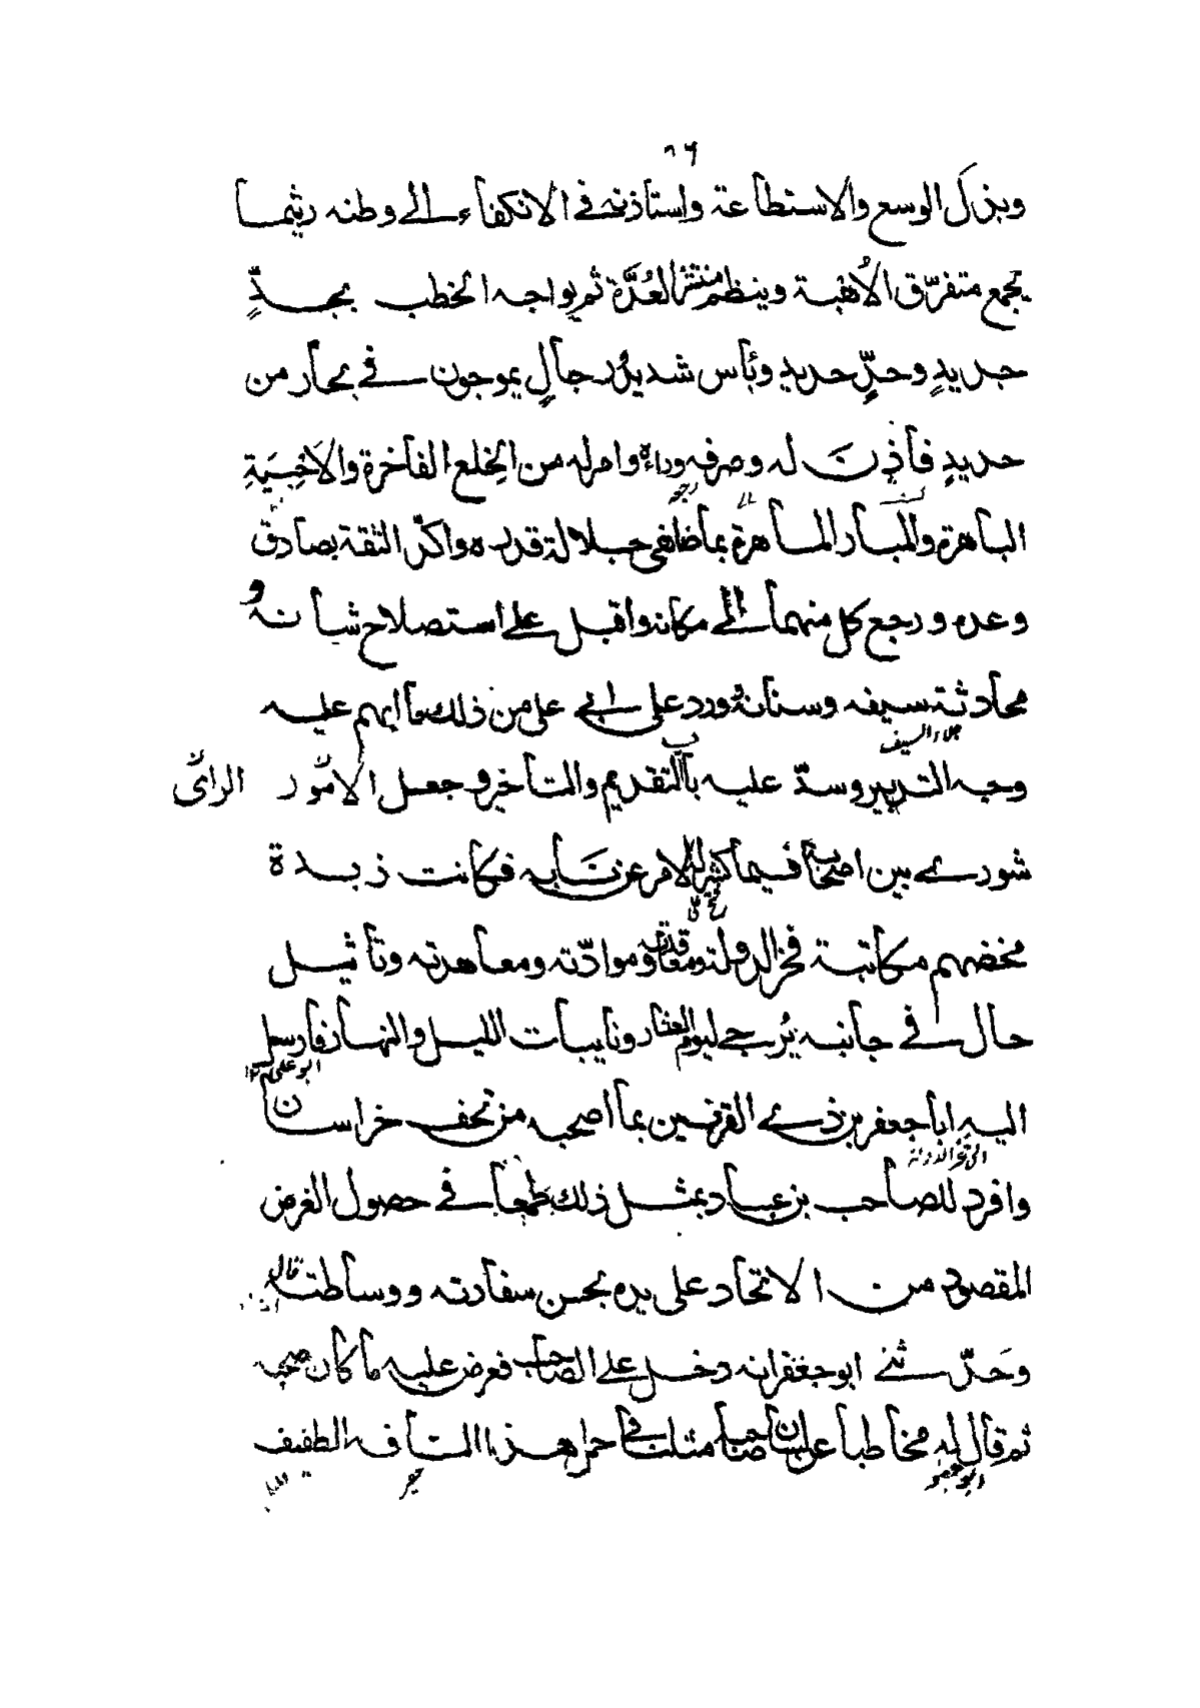 ٨٦
وبذل الوسع والاستطاعة واستأذنه في الانكفاء الى وطنه ريثما
يجمع متفرّق الأهبة وينظم منتثر العُدَّة ثم يواجه الخطب بجدٍّ
جديدٍ وحدٍّ حديد وبأس شديد رجالٍ يموجون في بحار من
حديدٍ فأذن له وصرفه وراءه وامر له من الخلع الفاخرة والاخبية
الباهرة والمبار الماهرة بما ضاهى جلالة قدره واكّد الثقة بصادق
وعده ورجع كل منهما الى مكانه واقبل على استصلاح شانه و
محادثة سيفه وسنانه وورد على ابي على من ذلك ما ابهم عليه
جلاء السيف
وجه التدبير وسدّ عليه باب التقديم والتأخير وجعل الامور الرأي
شورى بين اصحابه فيما كشر له الامر عن نابه فكانت زبدة
مخضهم مكاتبة فخر الدولة ومعاقدته وموادّته ومعاهدته وتأثيل
حال في جانبه يُرجى ليوم العثار ونايبات الليل والنهار فارسل
ابو على
اليه ابا جعفر بن ذى القرنين بما اصحبه من تحف خراسان
الى فخر الدولة
وافرد للصاحب بن عباد بمثل ذلك طمعا في حصول الغرض
المقصود من الاتحاد على يده بحسن سفارته ووساطته قال
وحدّثني ابو جعفر انه دخل على الصاحب فعرض عليه ما كان صحبه
ثم قال له مخاطبا عن لسان صاحبه مثلنا في حمل هذا التافه الطفيف
ابو جعفر